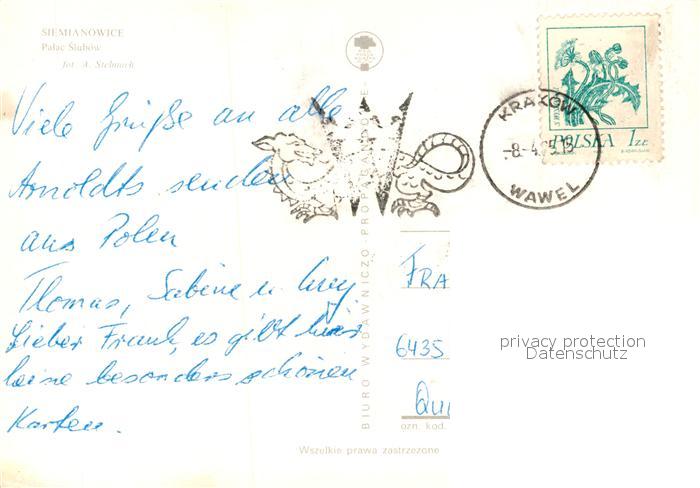 SIEMIANOWICE
Pałac Ślubów
fot. A. Stelmach
Viele Grüße an alle
Arnoldts senden
aus Polen
Thomas, Sabine u.
Lieber Frank, es gibt hier
keine besonders schönen
Karten.
BIURO WYDAWNICZO PRO
KRAKÓW
-8-4.75-13
WAWEL
POLSKA 1 ZŁ
FRA
6435
Qui
ozn. kod.
privacy protection
Datenschutz
Wszelkie prawa zastrzeżone